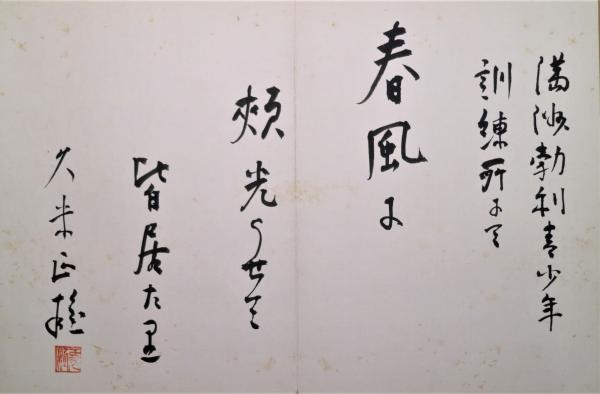 満洲勃利青少年
訓練所にて
春風に
頬光らせて
皆居たり
久米正雄